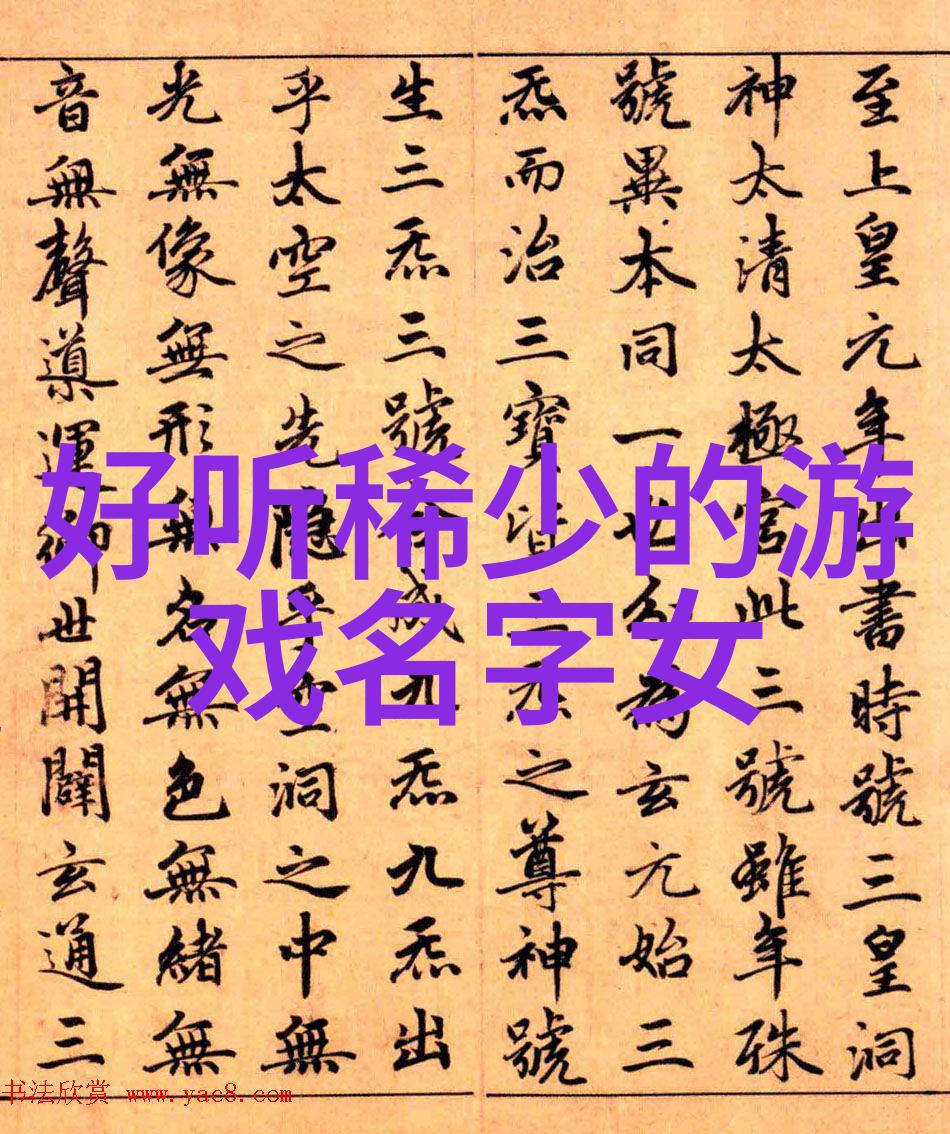 好听稀少的游
戏名字女
至上皇元年出書時號三皇洞
神太清太極宮此三號雖年殊
號異本同一也分為玄元始三
炁而治三寶皆三炁之尊神號
生三炁三號合成九炁九炁出
乎太空之先隱乎空洞之中無
光無像無形無名無色無緒無
音無聲導運御世開闢玄通三
书法欣赏 www.yac8.com